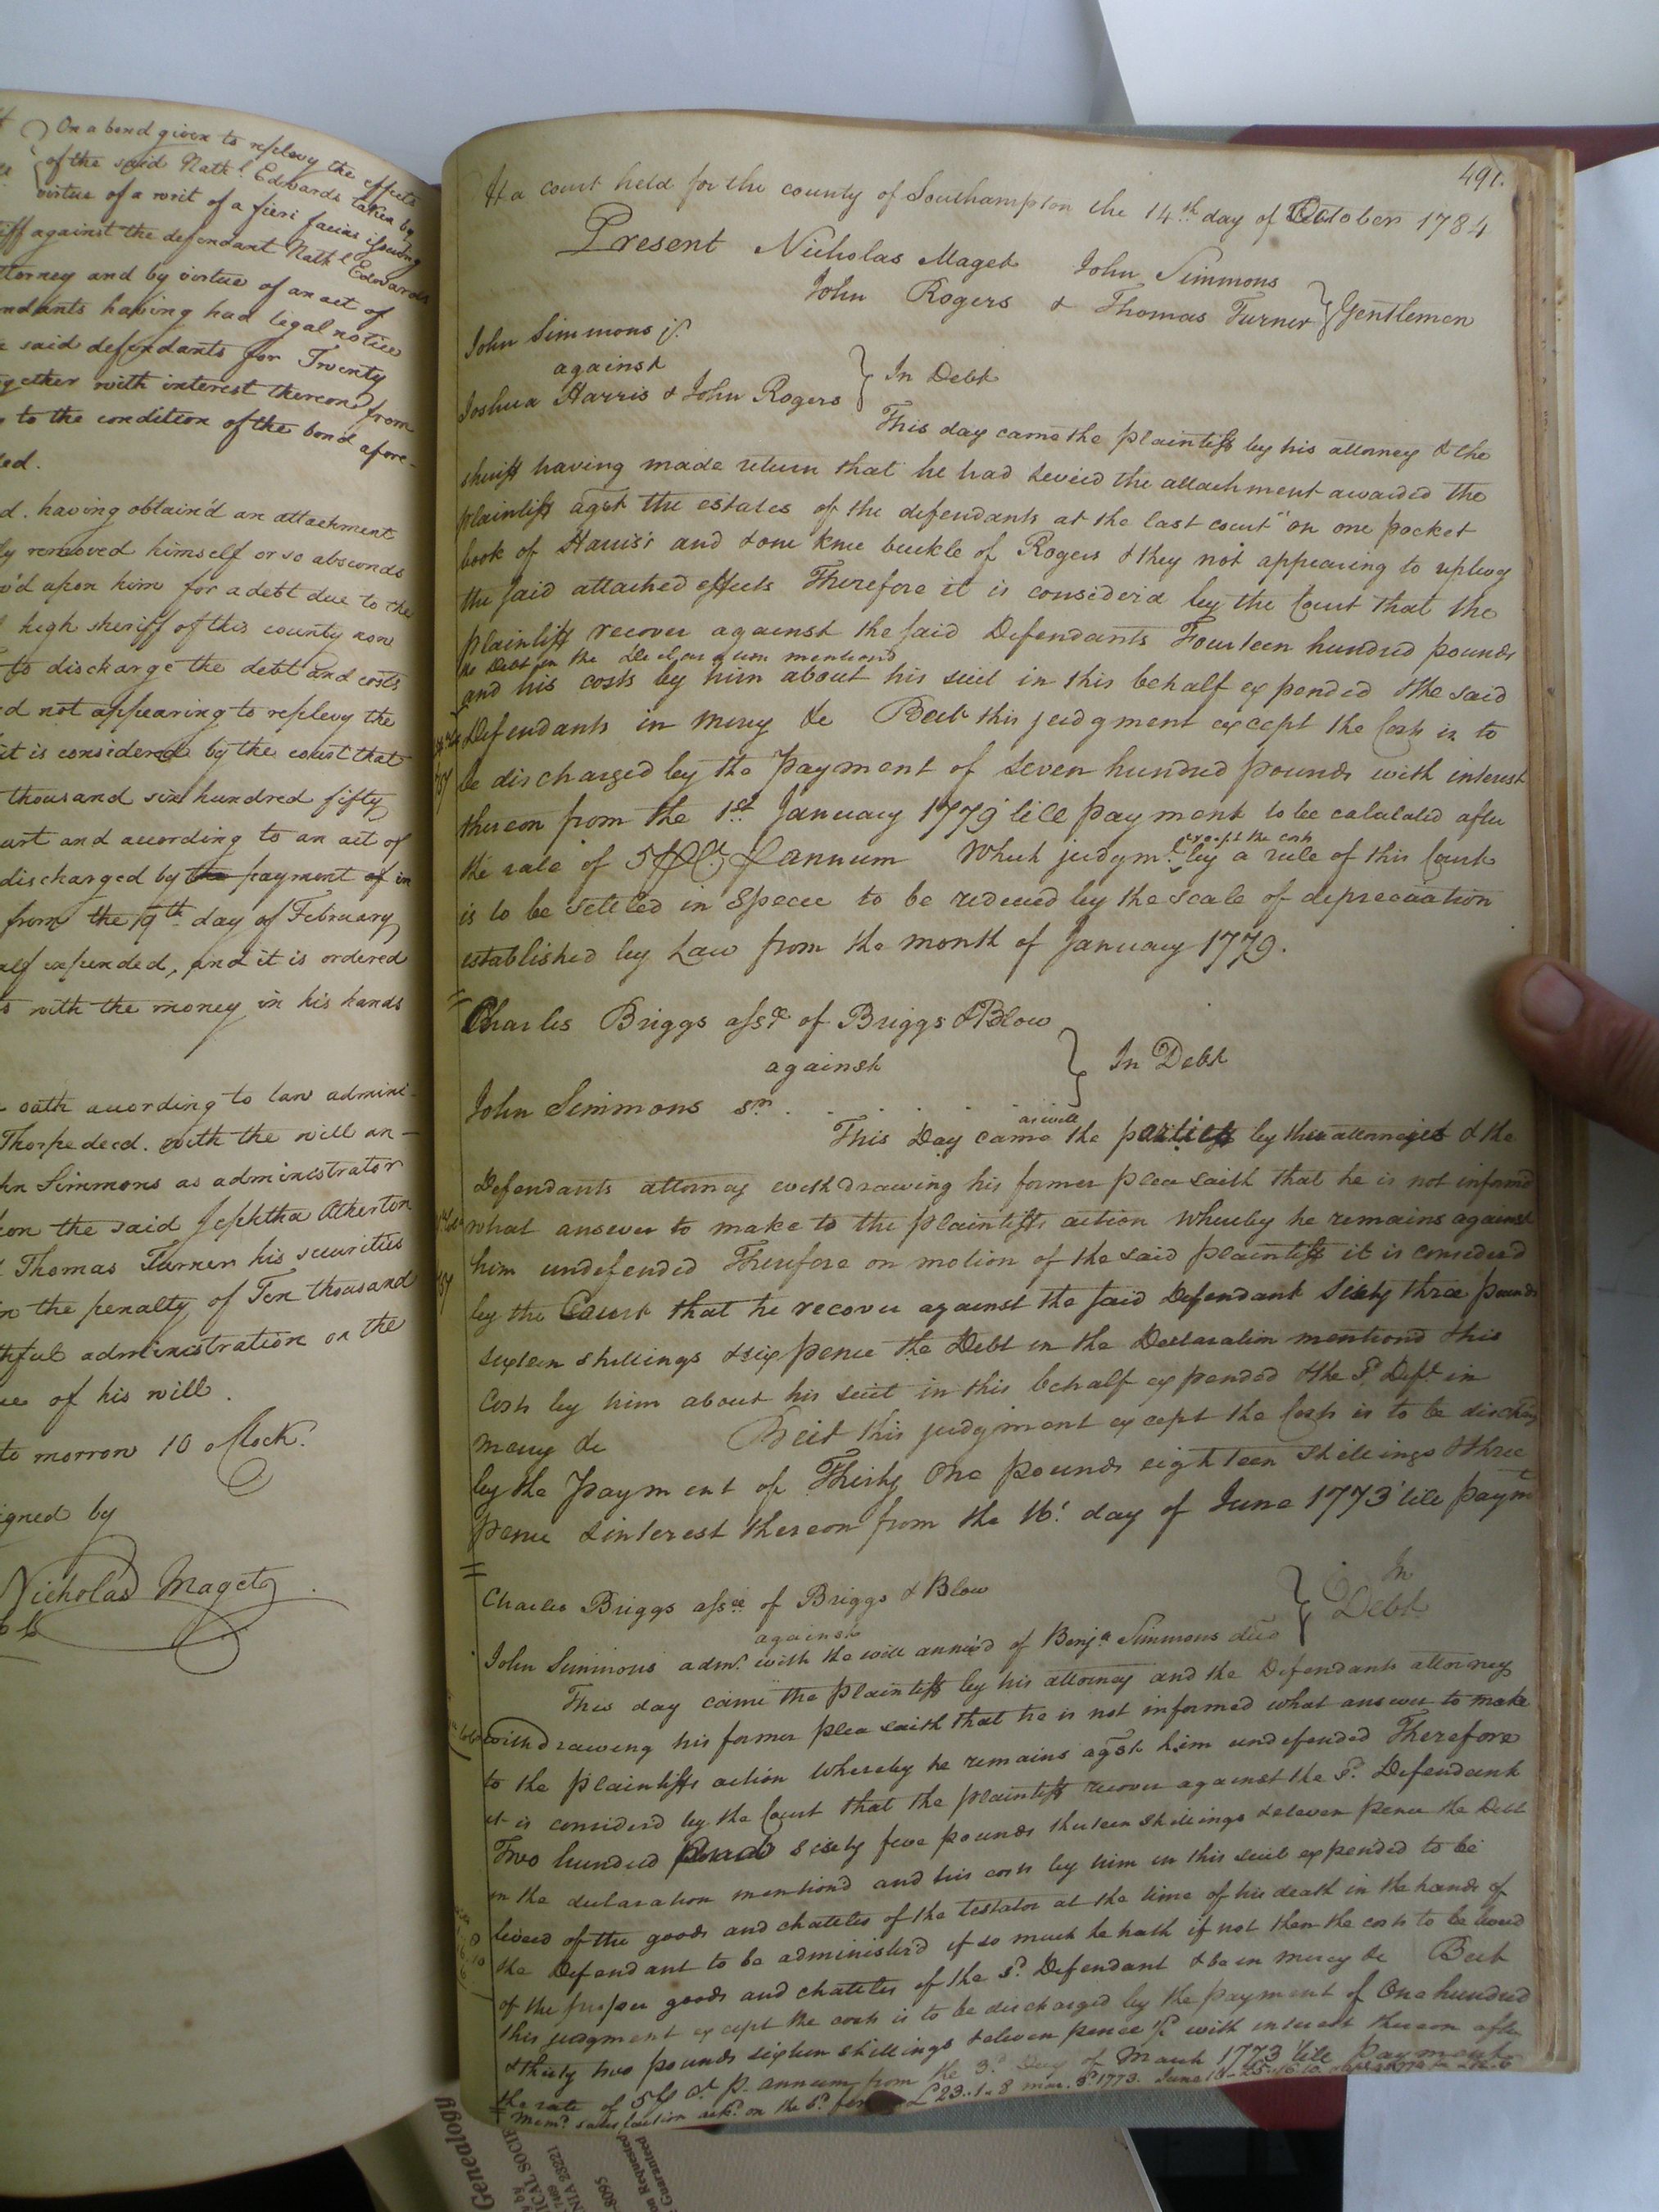 On a bond given to replevy the effects
of the said Nathl. Edwards taken by
virtue of a writ of a fieri facias issuing
iff against the defendant Nathl Edwards
ttorney and by virtue of an act of
ndants having had legal notice
said defendants for Twenty
gether with interest thereon from
to the condition of the bond afore-
ed.
d. having obtain'd an attachment
ly removed himself or so absconds
v'd upon him for a debt due to the
high sheriff of this county now
to discharge the debt and costs
d not appearing to replevy the
it is considered by the court that
thousand six hundred fifty
urt and according to an act of
discharged by the payment of in
from the 19th day of February
alf expended, and it is ordered
s with the money in his hands
oath according to law admini-
Thorpe deced. with the will an-
hn Simmons as administrator
on the said Jephtha Atherton
Thomas Turner his securities
in the penalty of Ten thousand
thful administration on the
ue of his will.
to morrow 10 oClock.
igned by
Nicholas Maget
491.
At a court held for the county of Southampton the 14th day of October 1784
Present Nicholas Maget John Simmons
John Rogers & Thomas Turner } Gentlemen
John Simmons jr.
against
Joshua Harris & John Rogers } In Debt
This day came the plaintiff by his attorney & the
sheriff having made return that he had levied the attachment awarded the
plaintiff agst the estates of the defendants at the last court "on one pocket
book of Harris's and & one knee buckle of Rogers & they not appearing to replevy
the said attached effects Therefore it is considerd by the Court that the
plaintiff recover against the said Defendants Fourteen hundred pounds
the Debt in the Declaration mentiond
and his costs by him about his suit in this behalf expended & the said
Defendants in mercy &c But this judgment except the Costs is to
be discharged by the Payment of seven hundred pounds with interest
thereon from the 1st. January 1779 till payment to be calculated after
the rate of 5 ⅌ Ct. ⅌ annum Which judgmt. by a rule of this Court
except the costs
is to be settled in Specie to be reduced by the scale of depreciation
established by Law from the month of January 1779.
Charles Briggs assee of Briggs & Blow
against } In Debt
John Simmons sr.
as well
This Day came the parties by their attornies & the
Defendants attorney withdrawing his former plea saith that he is not informd
what answer to make to the plaintiffs action Whereby he remains against
him undefended Therefore on motion of the said plaintiff it is considered
by the Court that he recover against the said Defendant Sixty three pounds
sixteen shillings & six pence the Debt in the Declaration mentiond & his
Costs by him about his suit in this behalf expended & the sd. Deft in
mercy &c But this judgment except the Costs is to be discharg
by the Payment of Thirty One pounds eighteen shillings & three
pence & interest thereon from the 16. day of June 1773 till paymt
Charles Briggs assee of Briggs & Blow } In
against Debt
John Simmons admr. with the will annexd of Benja Simmons decd
This day came the plaintiff by his attorney and the Defendants attorney
withdrawing his former plea saith that he is not informed what answer to make
to the plaintiffs action Whereby he remains agst him undefended Therefore
it is considerd by the Court that the plaintiff recover against the sd. Defendant
Two hundred pounds sixty five pounds thirteen shillings & eleven pence the Debt
in the declaration mentiond and his costs by him in this suit expended to be
levied of the goods and chatels of the testator at the time of his death in the hands of
the Defendant to be administerd if so much he hath if not then the costs to be levied
of the proper goods and chateles of the sd. Defendant & be in mercy &c But
this judgment except the costs is to be discharged by the payment of One hundred
& thirty two pounds sixteen shillings & eleven pence ½ with interest thereon after
the rate of 5 ⅌ Ct p. annum from the 3d. Day of March 1773 till Payment
Memo. satisfaction ackd. on the sd. for £23..1..8 mar. 3d. 1773. June 16
Genealogy